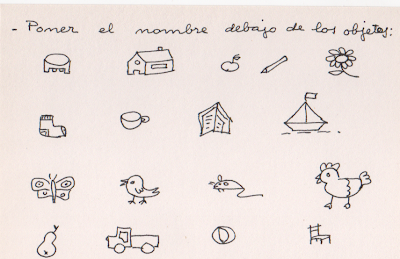 - Poner el nombre debajo de los objetos: